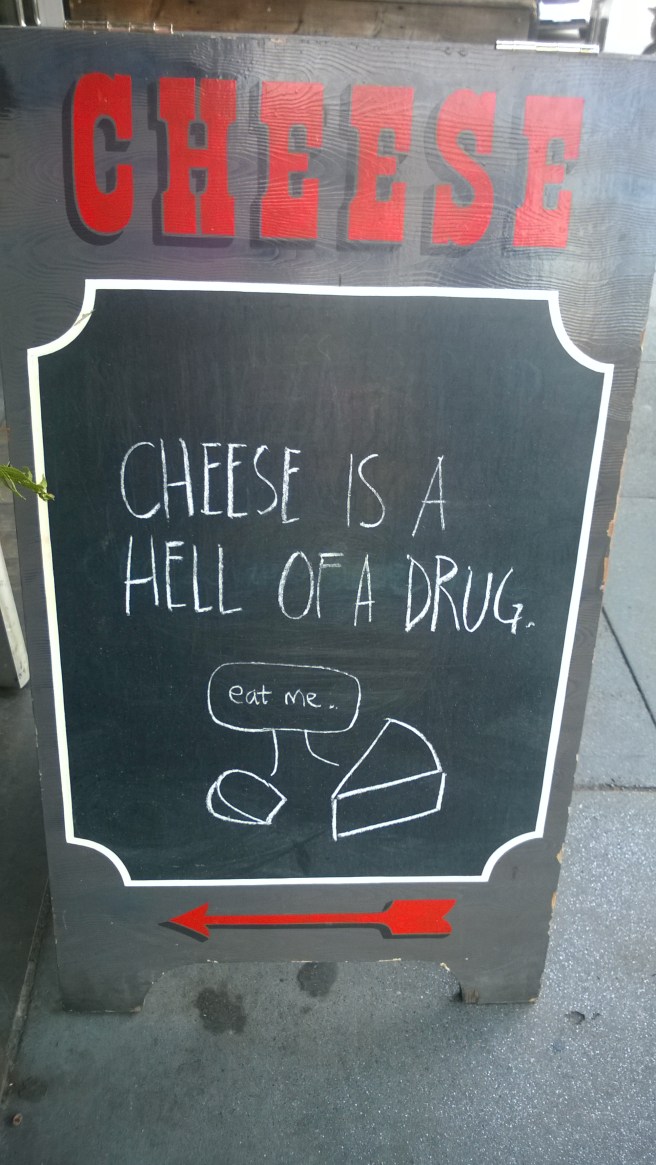 CHEESE
CHEESE IS A
HELL OF A DRUG.
eat me..